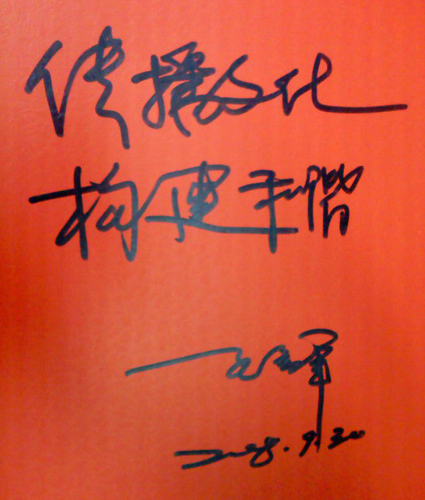 传播文化
构建和谐
2008.9.20